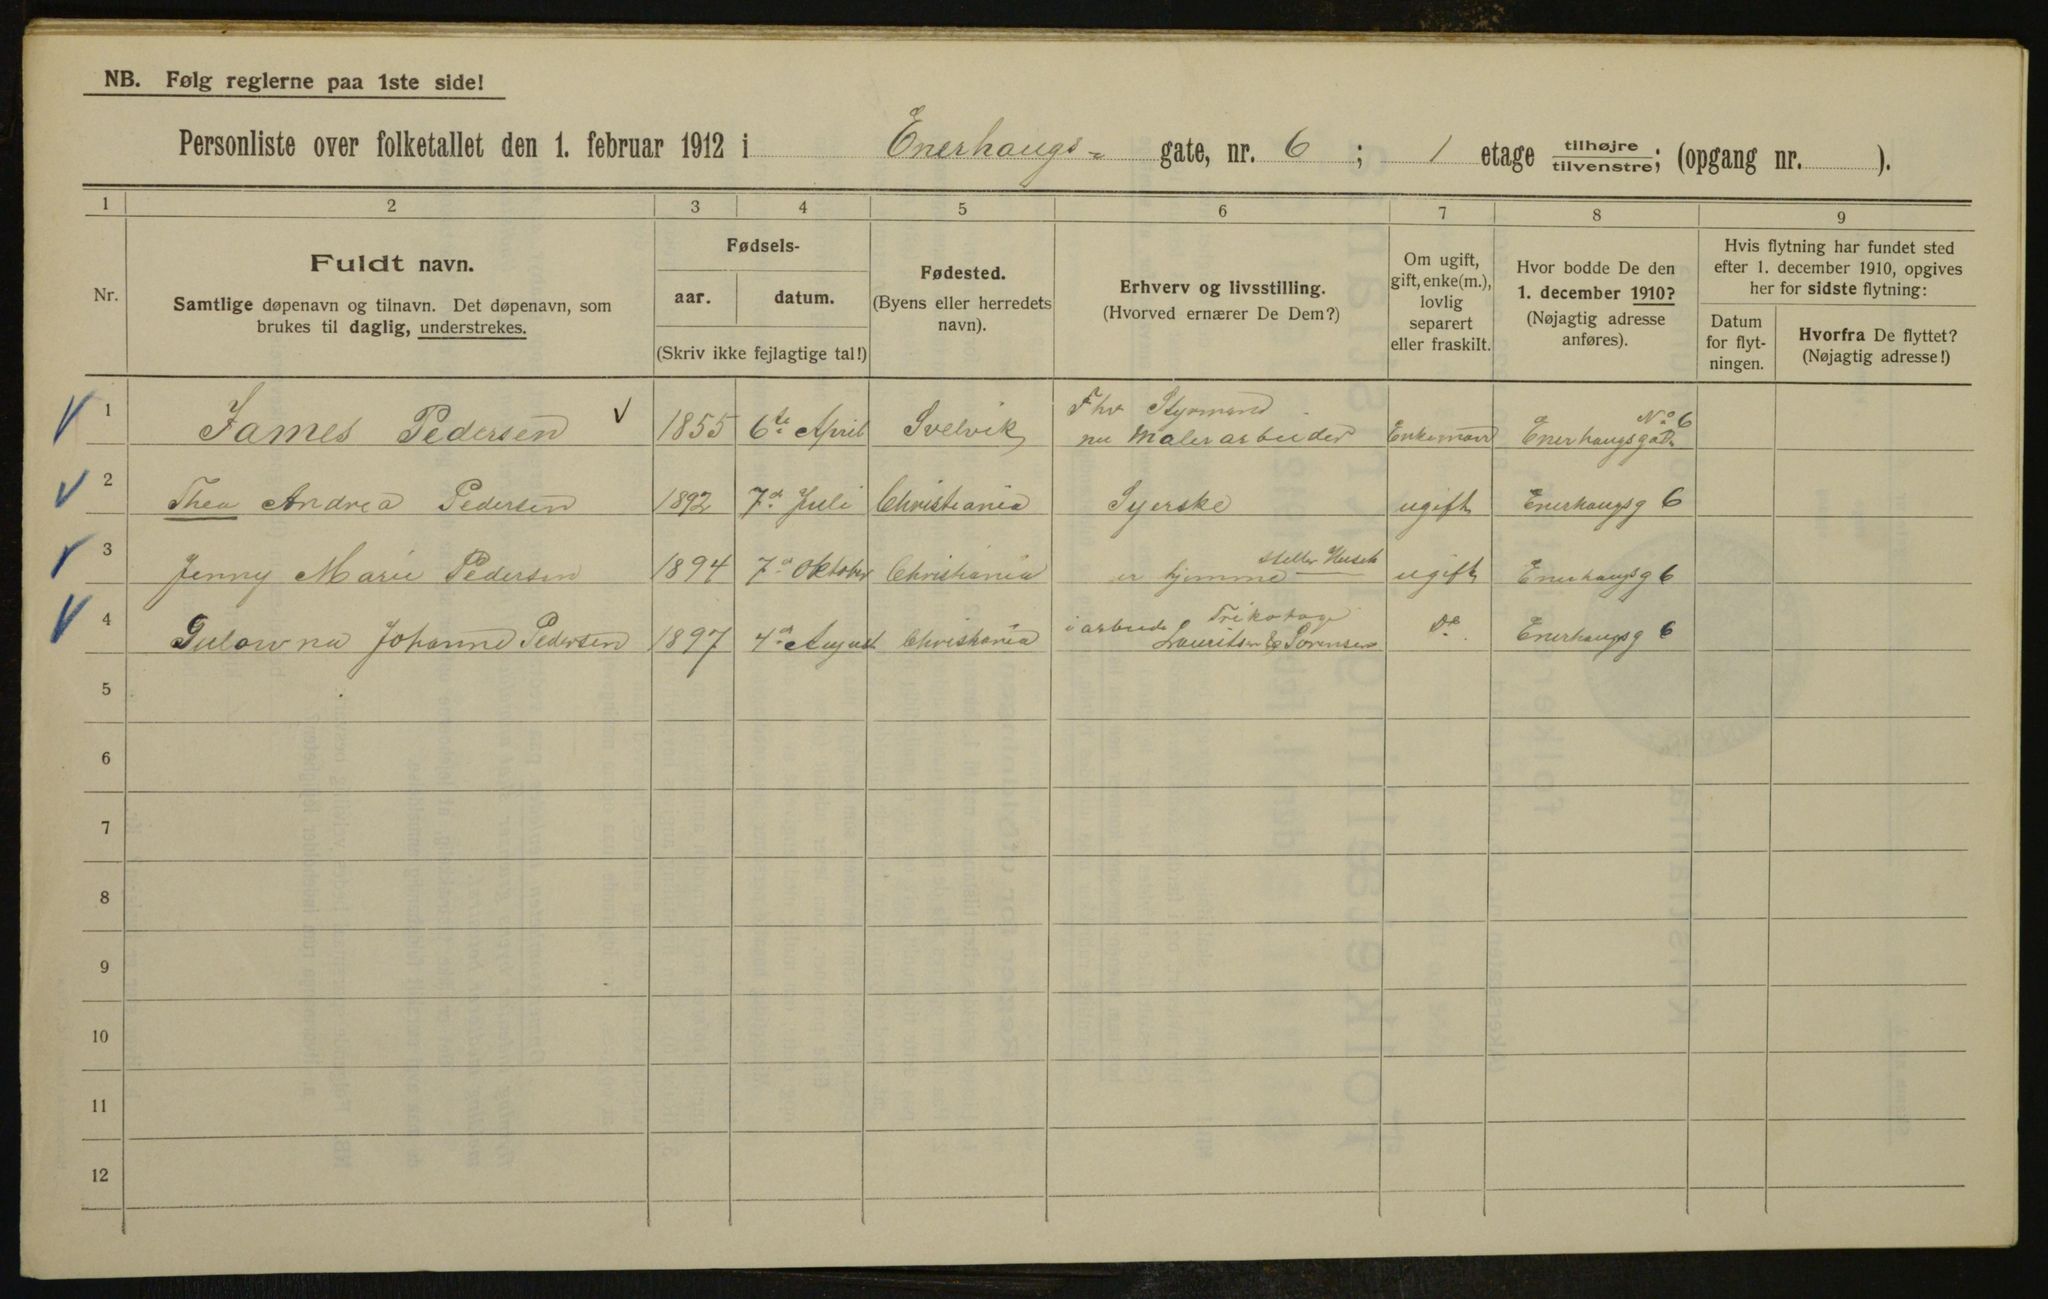 NB. Følg reglerne paa 1ste side!
Personliste over folketallet den 1. februar 1912 i Enerhaugs- gate, nr. 6 ; 1 etage tilhøjre/tilvenstre; (opgang nr. ).
1 2 3 4 5 6 7 8 9
Nr.
Fuldt navn.
Samtlige døpenavn og tilnavn. Det døpenavn, som
brukes til daglig, understrekes.
Fødsels-
aar. datum.
(Skriv ikke fejlagtige tal!)
Fødested.
(Byens eller herredets
navn).
Erhverv og livsstilling.
(Hvorved ernærer De Dem?)
Om ugift,
gift, enke(m.),
lovlig
separert
eller fraskilt.
Hvor bodde De den
1. december 1910?
(Nøjagtig adresse
anføres).
Hvis flytning har fundet sted
efter 1. december 1910, opgives
her for sidste flytning:
Datum
for flyt-
ningen.
Hvorfra De flyttet?
(Nøjagtig adresse!)
1 James Pedersen 1855 6te April Svelvik Fhv Styrmand nu Malerarbeider Enkemand Enerhaugsgad. No 6
2 Thea Andrea Pedersen 1892 7d. Juli Christiania Syerske ugift Enerhaugsg 6
3 Jenny Marie Pedersen 1894 7d Oktober Christiania er hjemme steller Huset ugift Enerhaugsg 6
4 Gulowna Johanne Pedersen 1897 4d August Christiania i arbeide Trikotage Lauritsen & Sørensen Do. Enerhaugsg 6
5
6
7
8
9
10
11
12